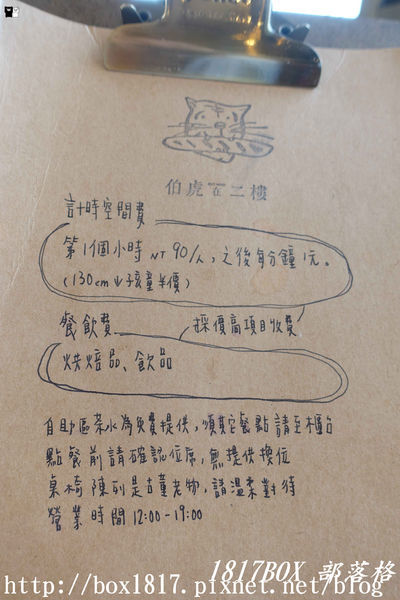 伯虎在二樓
計時空間費
第1個小時 NT 90/人，之後每分鐘1元。
(130cm↓孩童半價)
餐飲費 採價高項目收費
烘焙品、飲品
自助區茶水為免費提供，須其它餐點請至櫃台
點餐前請確認位席，無提供換位
桌椅陳列是古董老物，請溫柔對待
營業時間 12:00-19:00
1817BOX 部落格
http://box1817.pixnet.net/blog